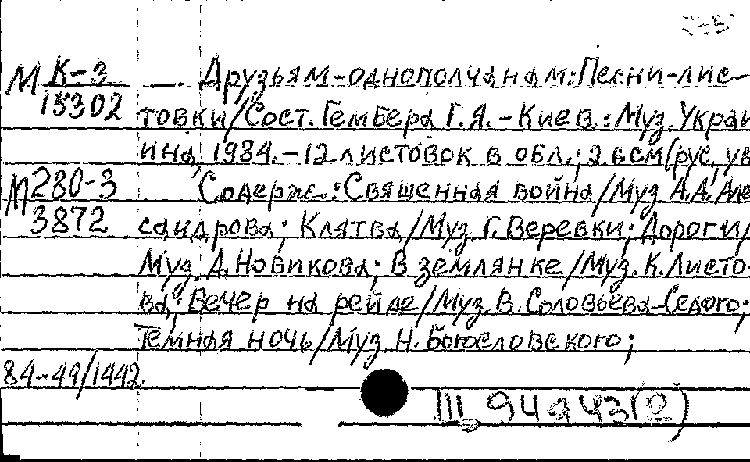 М К-3 Друзьям-однополчанам: Песни-лис-
15302 товки/Сост. Гембера Г.Я. - Киев: Муз. Украї
ина, 1984. - 12 листовок в обл.; 2. (рус, ук
М 280-3 Содерж.: Священная война/Муз А.А. Алек
3872 сандрова; Клятва/Муз. Г. Веревки; Дороги/
Муз. А. Новикова; В землянке/Муз. К. Листо-
ва; Вечер на рейде/Муз. В. Соловьева-Седого;
Темная ночь/Муз. Н. Богословского;
84-49/1442.
Ш 94943(2)